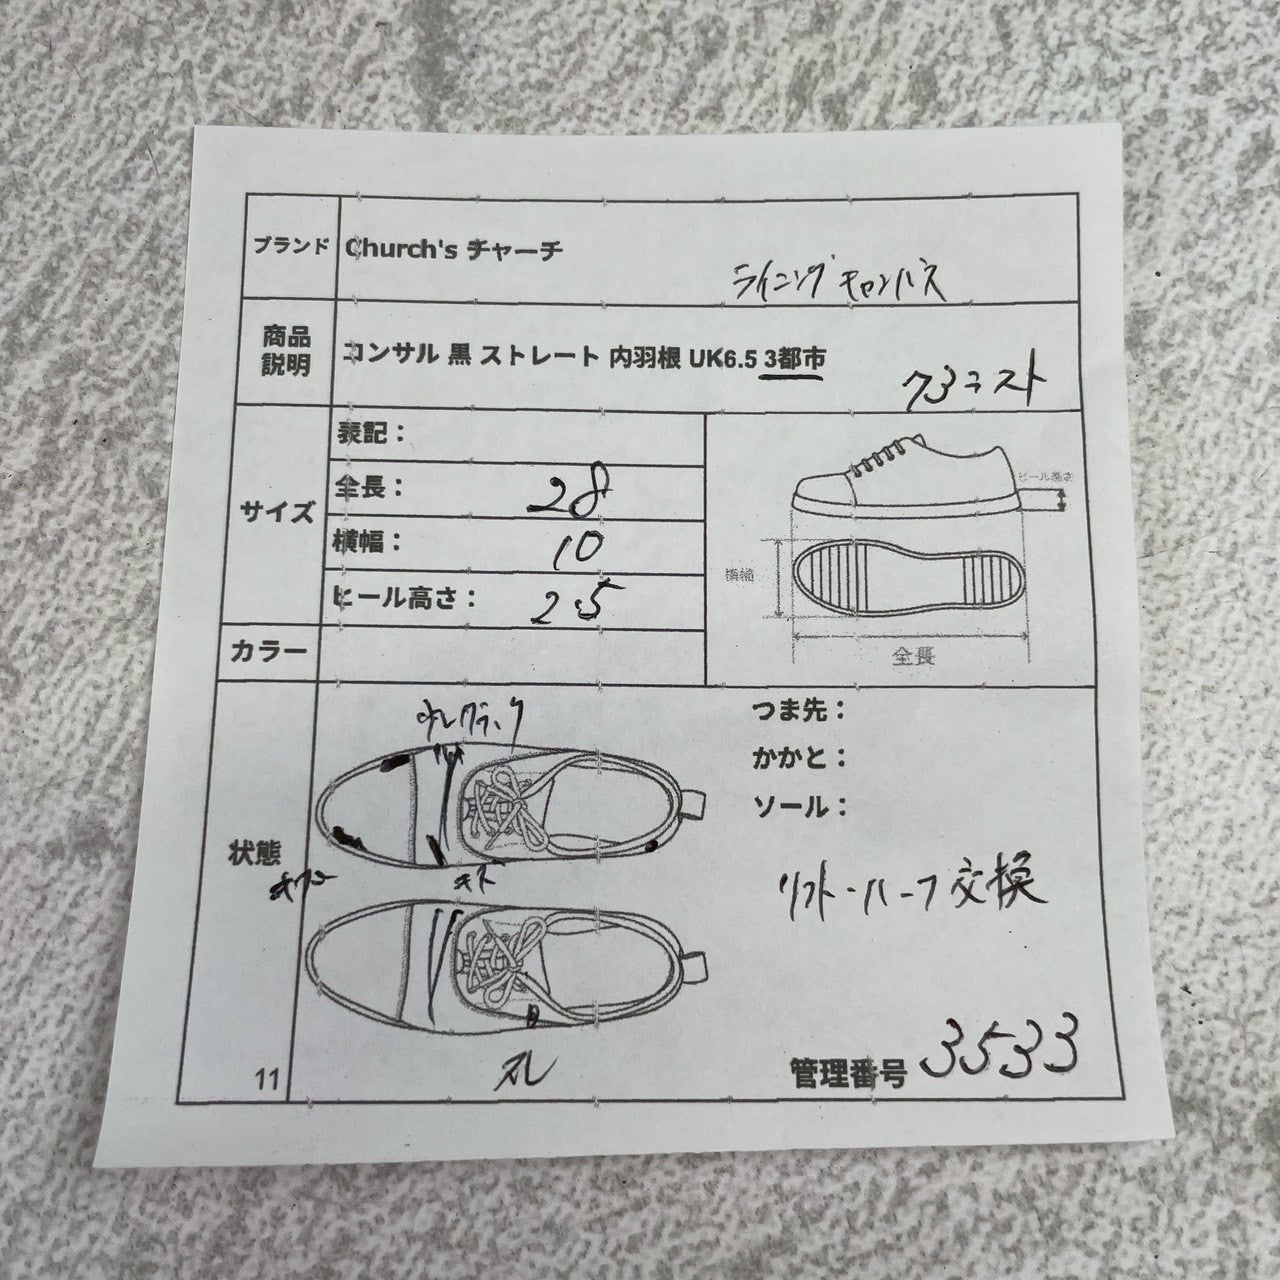 ブランド Church's チャーチ
ライニング キャンバス
商品説明 コンサル 黒 ストレート 内羽根 UK6.5 3都市
73ラスト
サイズ
表記：
全長： 28
横幅： 10
ヒール高さ： 2.5
ヒール高さ
横幅
全長
カラー
状態
つま先：
かかと：
ソール：
キズ
スレ
リフト・ハーフ交換
11
管理番号 3533